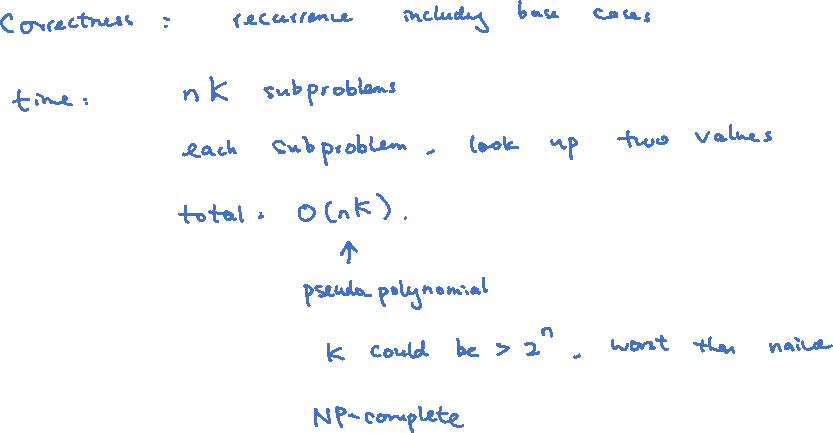 Correctness : recurrence including base cases
time : nK subproblems
each subproblem, look up two values
total : O(nK).
↑
pseudo polynomial
K could be > 2^n, worst than naive
NP-complete